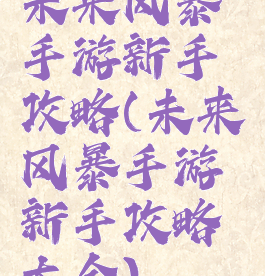 未来风暴
手游新手
攻略(未来
风暴手游
新手攻略
大全)